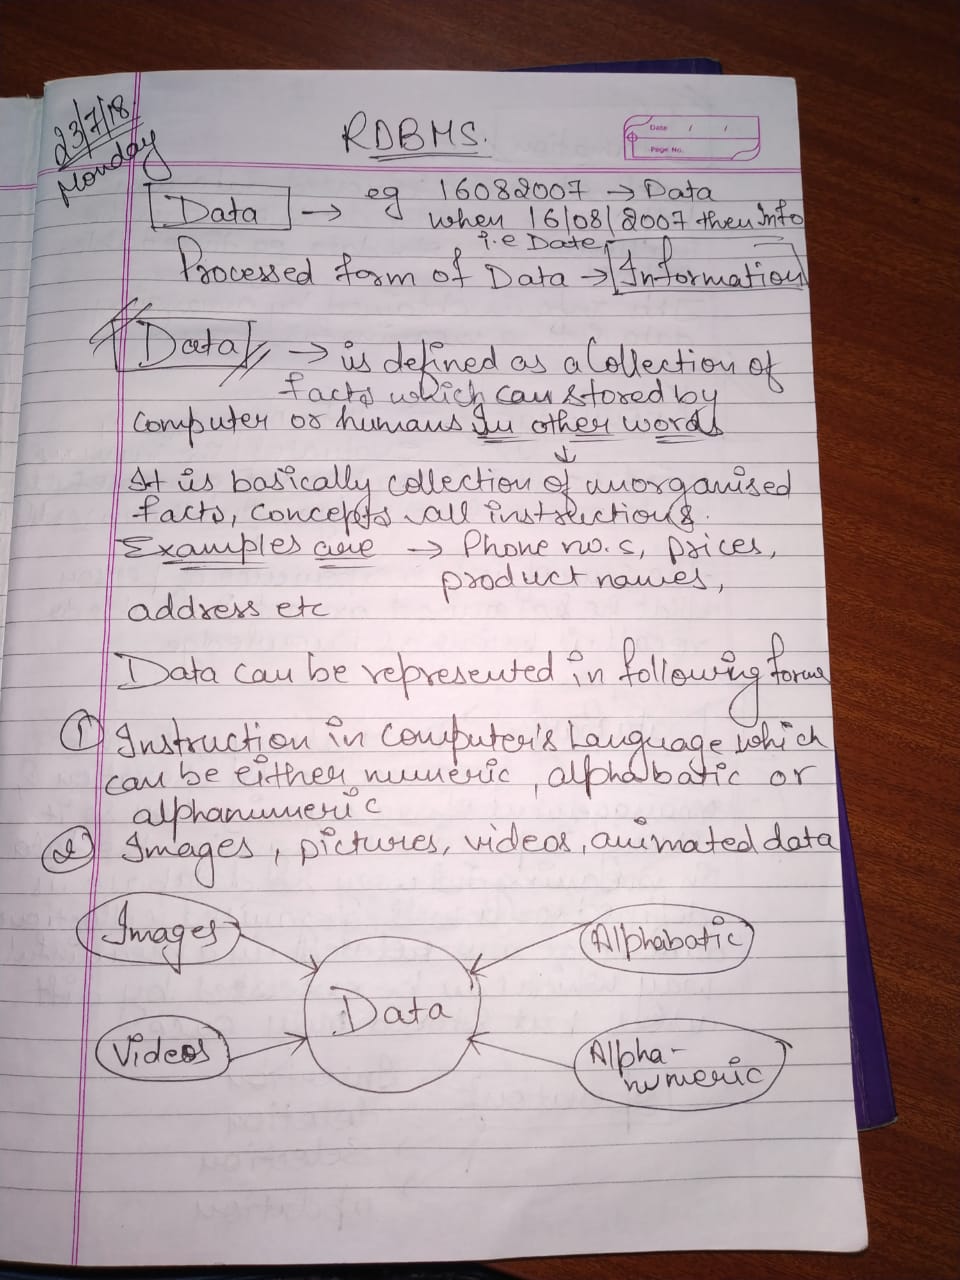 23/7/18
Monday
RDBMS.
Date / /
Page No.
Data → eg 16082007 → Data
when 16/08/2007 then Info
i.e Date
Processed form of Data → Information
Data → is defined as a Collection of
facts which can stored by
computer or humans In other words
↓
It is basically collection of unorganised
facts, concepts all instructions.
Examples are → Phone no.s, prices,
product names,
address etc
Data can be represented in following forms
① Instruction in Computer's Language which
can be either numeric, alphabatic or
alphanumeric
② Images, pictures, videos, animated data
Images
Alphabatic
Data
Videos
Alpha-
numeric